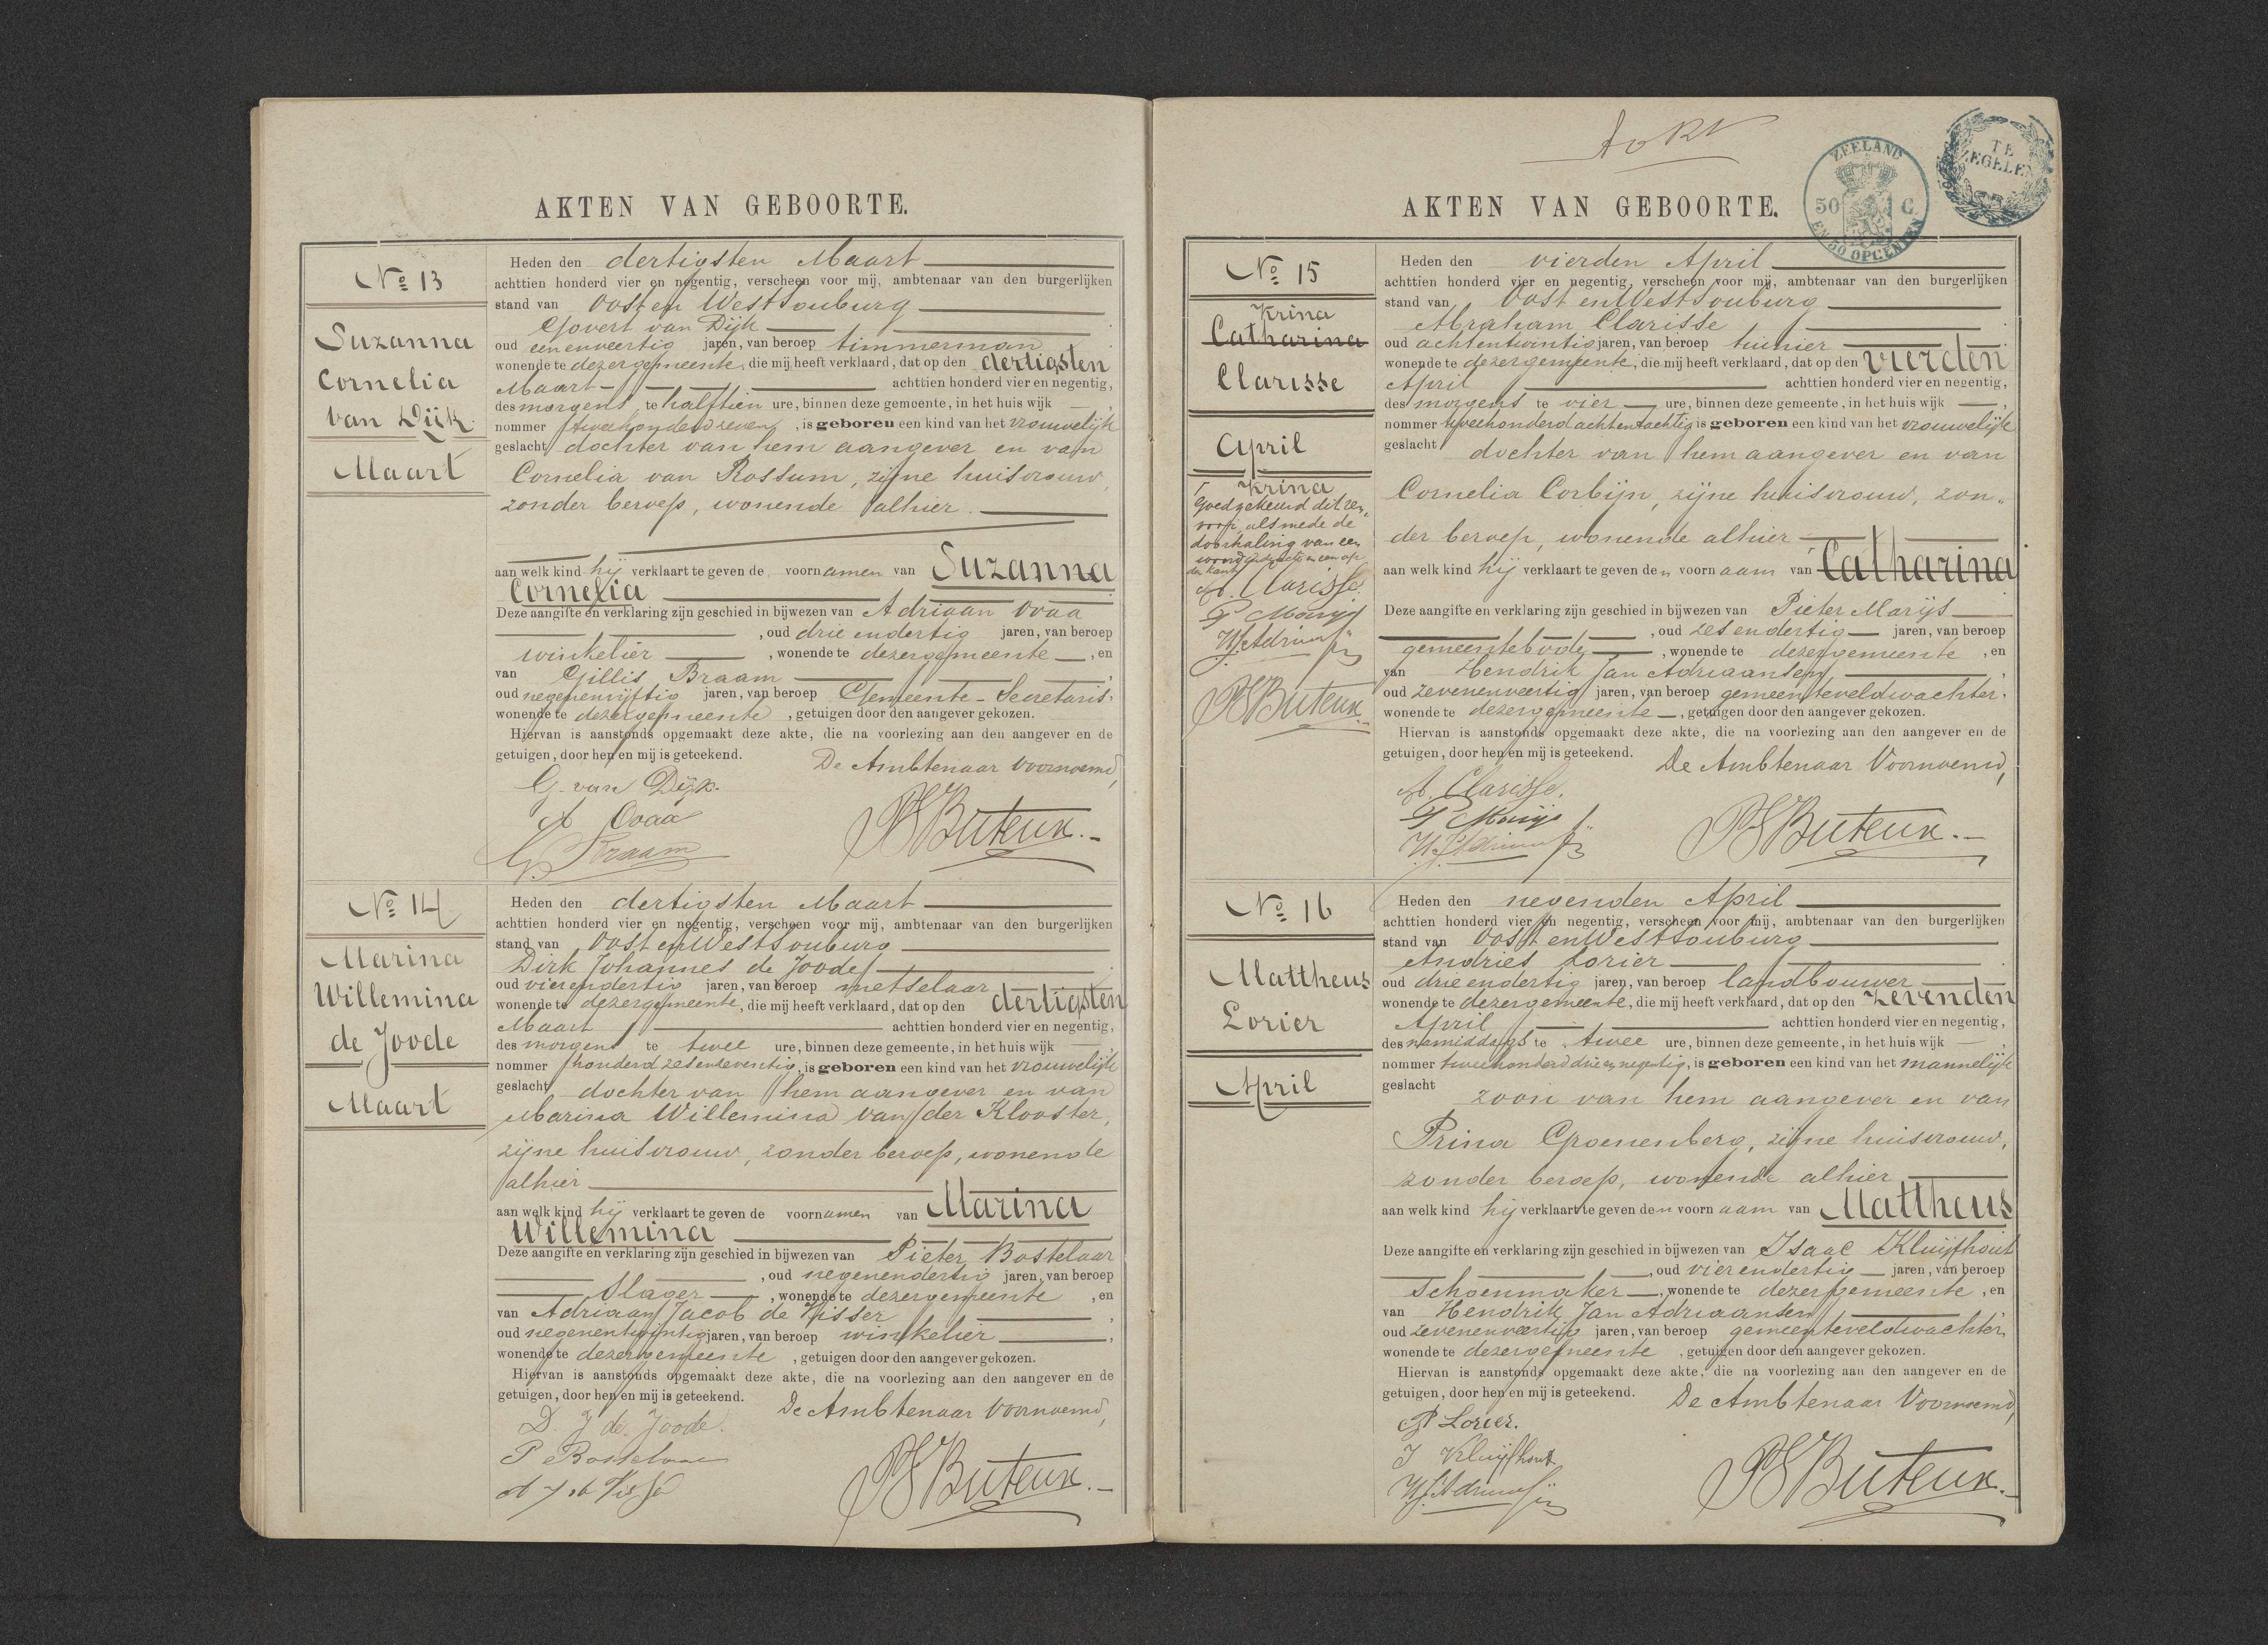 AKTEN VAN GEBOORTE.
Nº 13
Suzanna
Cornelia
van Dijk.
Maart
Heden den dertigsten Maart
achttien honderd vier en negentig, verscheen voor mij, ambtenaar van den burgerlijken
stand van Oost en West Souburg
Govert van Dijk
oud eenenveertig jaren, van beroep timmerman
wonende te dezer gemeente, die mij heeft verklaard, dat op den dertigsten
Maart achttien honderd vier en negentig,
des morgens te halftien ure, binnen deze gemeente, in het huis wijk
nommer tweehonderd zeven, is geboren een kind van het vrouwelijk
geslacht dochter van hem aangever en van
Cornelia van Rossum, zijne huisvrouw,
zonder beroep, wonende alhier.
aan welk kind hij verklaart te geven de voornamen van Suzanna
Cornelia
Deze aangifte en verklaring zijn geschied in bijwezen van Adriaan Ovaa
, oud drie endertig jaren, van beroep
winkelier, wonende te dezer gemeente, en
van Gillis Braam,
oud negenenvijftig jaren, van beroep Gemeente-Secretaris,
wonende te dezer gemeente, getuigen door den aangever gekozen.
Hiervan is aanstonds opgemaakt deze akte, die na voorlezing aan den aangever en de
getuigen, door hen en mij is geteekend. De Ambtenaar Voornoemd,
G. van Dijk.
A Ovaa
G. Braam
PSButeux.-
Nº 14
Marina
Willemina
de Joode
Maart
Heden den dertigsten Maart
achttien honderd vier en negentig, verscheen voor mij, ambtenaar van den burgerlijken
stand van Oost en West Souburg
Dirk Johannes de Joode
oud vierendertig jaren, van beroep metselaar
wonende te dezer gemeente, die mij heeft verklaard, dat op den dertigsten
Maart achttien honderd vier en negentig,
des morgens te twee ure, binnen deze gemeente, in het huis wijk
nommer honderd zesenzeventig, is geboren een kind van het vrouwelijk
geslacht dochter van hem aangever en van
Marina Willemina van der Klooster,
zijne huisvrouw, zonder beroep, wonende
alhier
aan welk kind hij verklaart te geven de voornamen van Marina
Willemina
Deze aangifte en verklaring zijn geschied in bijwezen van Pieter Bostelaar
, oud negenendertig jaren, van beroep
Slager, wonende te dezer gemeente, en
van Adriaan Jacob de Visser,
oud negenentwintig jaren, van beroep winkelier,
wonende te dezer gemeente, getuigen door den aangever gekozen.
Hiervan is aanstonds opgemaakt deze akte, die na voorlezing aan den aangever en de
getuigen, door hen en mij is geteekend. De Ambtenaar Voornoemd,
D. J de Joode.
P Bostelaar
A J de Visser
PSButeux.-
ZEELAND
50 C.
EN 50 OPCENTEN
TE
ZEGELEN
AKTEN VAN GEBOORTE.
Nº 15
Krina
Catharina
Clarisse
April
Krina
Goedgekeurd dit ren-
vooi, alsmede de
doorhaling van een
woord en een op
den kant
A. Clarisse.
P Marijs
HJAdriaansen
PSButeux
Heden den vierden April
achttien honderd vier en negentig, verscheen voor mij, ambtenaar van den burgerlijken
stand van Oost en West Souburg
Abraham Clarisse
oud achtentwintig jaren, van beroep tuinier
wonende te dezer gemeente, die mij heeft verklaard, dat op den vierden
April achttien honderd vier en negentig,
des morgens te vier ure, binnen deze gemeente, in het huis wijk
nommer tweehonderd achtentachtig is geboren een kind van het vrouwelijk
geslacht dochter van hem aangever en van
Cornelia Corbijn, zijne huisvrouw, zon-
der beroep, wonende alhier
aan welk kind hij verklaart te geven den voornaam van Catharina
Deze aangifte en verklaring zijn geschied in bijwezen van Pieter Marijs
, oud zes endertig jaren, van beroep
gemeentebode, wonende te dezer gemeente, en
van Hendrik Jan Adriaansen,
oud zevenenveertig jaren, van beroep gemeenteveldwachter,
wonende te dezer gemeente, getuigen door den aangever gekozen.
Hiervan is aanstonds opgemaakt deze akte, die na voorlezing aan den aangever en de
getuigen, door hen en mij is geteekend. De Ambtenaar Voornoemd,
A. Clarisse.
P Marijs
HJAdriaansen
PSButeux.-
Nº 16
Mattheus
Lorier
April
Heden den negenden April
achttien honderd vier en negentig, verscheen voor mij, ambtenaar van den burgerlijken
stand van Oost en West Souburg
Andries Lorier
oud drie endertig jaren, van beroep landbouwer
wonende te dezer gemeente, die mij heeft verklaard, dat op den zevenden
April achttien honderd vier en negentig,
des namiddags te twee ure, binnen deze gemeente, in het huis wijk
nommer tweehonderd drie en negentig, is geboren een kind van het mannelijk
geslacht zoon van hem aangever en van
Prina Groenenberg, zijne huisvrouw,
zonder beroep, wonende alhier
aan welk kind hij verklaart te geven den voornaam van Mattheus
Deze aangifte en verklaring zijn geschied in bijwezen van Isaac Kluijfhout
, oud vierendertig jaren, van beroep
Schoenmaker, wonende te dezer gemeente, en
van Hendrik Jan Adriaansen,
oud zevenenveertig jaren, van beroep gemeenteveldwachter,
wonende te dezer gemeente, getuigen door den aangever gekozen.
Hiervan is aanstonds opgemaakt deze akte, die na voorlezing aan den aangever en de
getuigen, door hen en mij is geteekend. De Ambtenaar Voornoemd,
A Lorier.
I Kluijfhout
HJAdriaansen
PSButeux.-